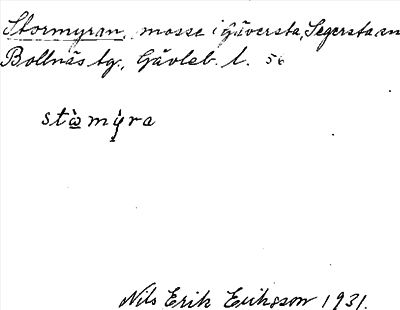 Stormyran, mosse i Gäversta, Segersta sn
Bollnäs tg., Gävleb. l. 56
stὼmy̆ra
Nils Erik Eriksson 1931.